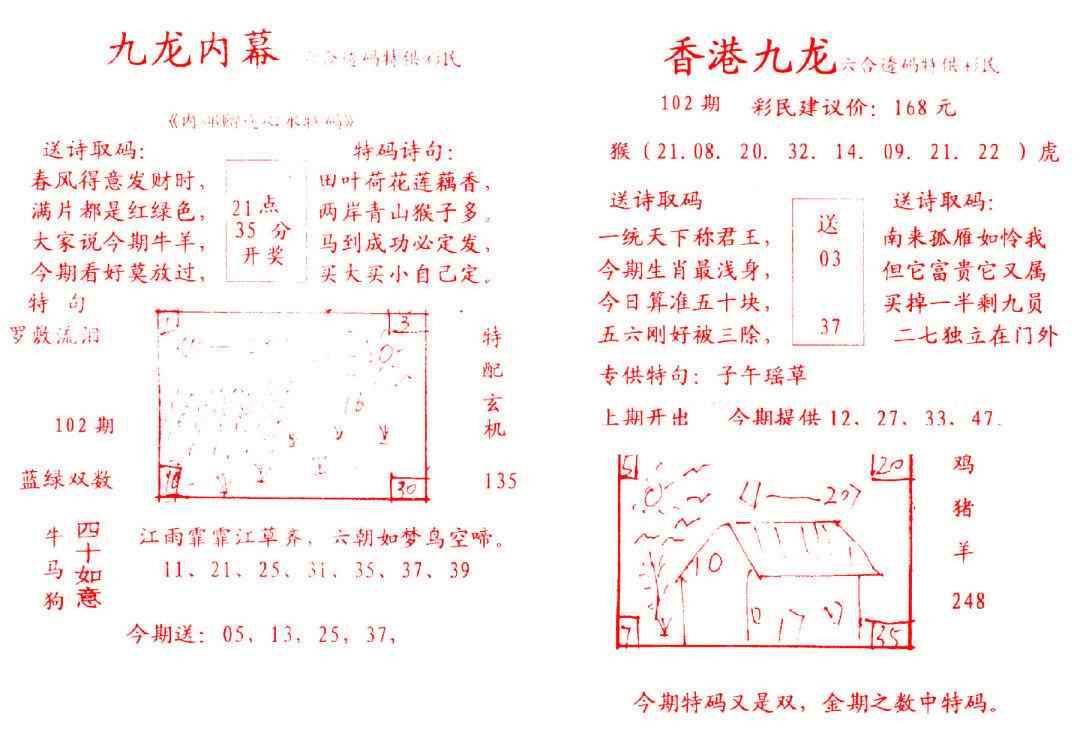 九龙内幕 六合透码特供彩民
送诗取码：
春风得意发财时，
满片都是红绿色，
大家说今期牛羊，
今期看好莫放过，
21点
35 分
开奖
特码诗句：
田叶荷花莲藕香，
两岸青山猴子多。
马到成功必定发，
买大买小自己定。
特 句
罗敷流泪
102期
蓝绿双数
1
3
16
30
特
配
玄
机
135
牛
马
狗
四十如意
江雨霏霏江草齐，六朝如梦鸟空啼。
11、21、25、31、35、37、39
今期送：05、13、25、37，
香港九龙 六合透码特供彩民
102期 彩民建议价：168元
猴（21.08. 20. 32. 14. 09. 21. 22 ）虎
送诗取码
一统天下称君王，
今期生肖最浅身，
今日算准五十块，
五六刚好被三除，
送
03
37
送诗取码：
南来孤雁如怜我
但它富贵它又属
买掉一半剩九员
二七独立在门外
专供特句：子午瑶草
上期开出 今期提供12、27、33、47.
5
20
10
17
7
35
鸡
猪
羊
248
今期特码又是双，金期之数中特码。